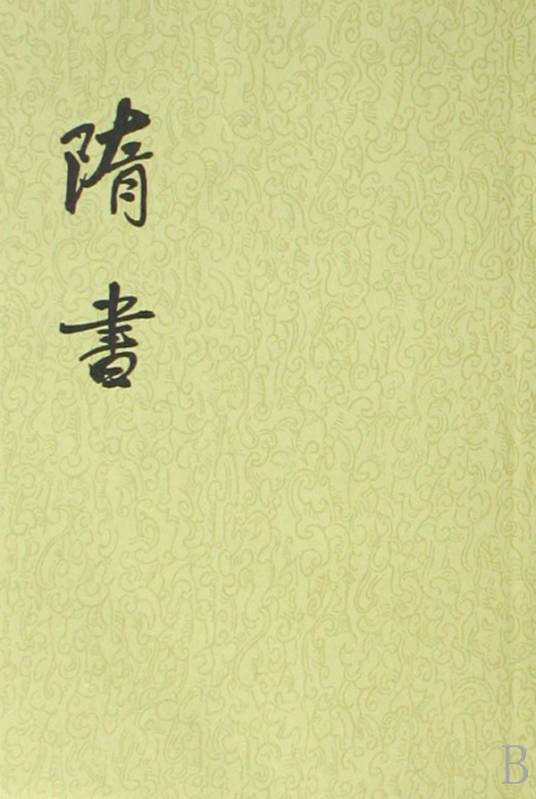 隋書
B